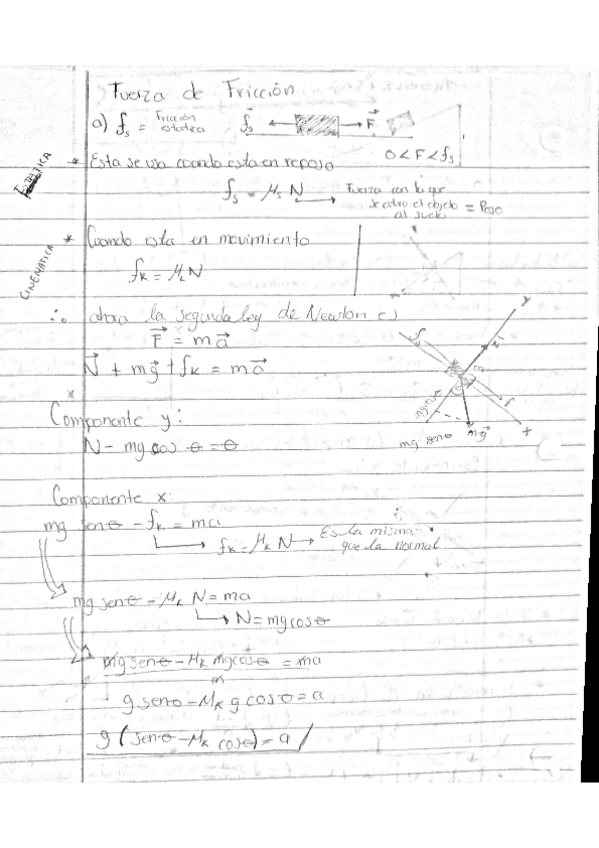 Fuerza de Fricción
a) fs = Fricción estatica f⃗s F⃗
0 < F < fs
ESTATICA * Esta se usa cuando esta en reposo
fs = μs N → Fuerza con la que se atrae el objeto al suelo = Peso
CINEMATICA * Cuando esta en movimiento
fk = μk N
∴ ahora la segunda ley de Newton es
F⃗ = m a⃗
N⃗ + m g⃗ + fk = m a⃗
y
x
mg senθ
mg⃗
Componente y:
N - mg cos θ = θ
Componente x:
mg senθ - fk = ma
fk = μk N → Es la misma que la normal
mg senθ - μk N = ma
N = mg cosθ
mg senθ - μk mg cosθ = ma
m
g senθ - μk g cosθ = a
g (senθ - μk cosθ) = a /